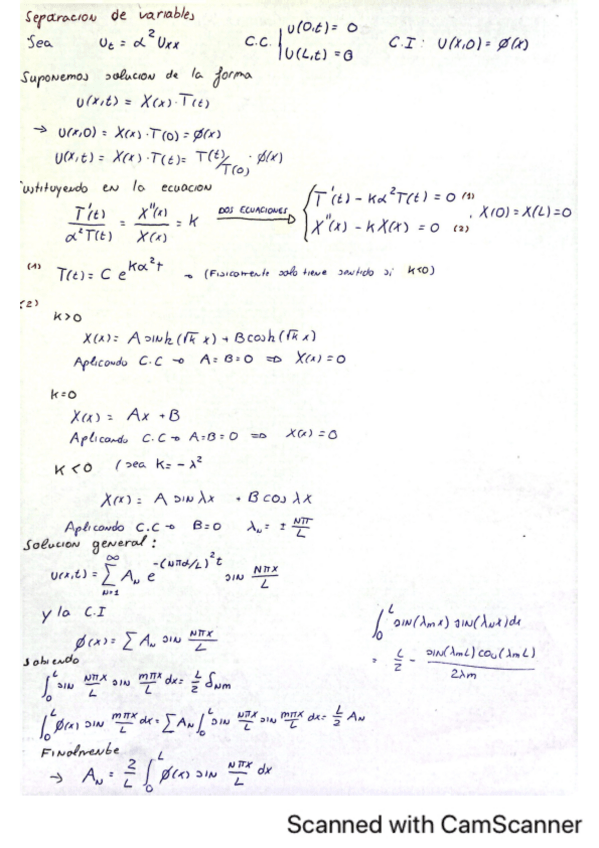 Separacion de variables
Sea u_t = α² u_xx C.C. | u(0,t) = 0 C.I : u(x,0) = ø(x)
| u(L,t) = 0
Suponemos solucion de la forma
u(x,t) = X(x) · T(t)
→ u(x,0) = X(x) · T(0) = ø(x)
u(x,t) = X(x) · T(t) = T(t)/T(0) · ø(x)
ustituyendo en la ecuacion
T'(t)/α²T(t) = X''(x)/X(x) = k DOS ECUACIONES → { T'(t) - kα²T(t) = 0 (1)
X''(x) - k X(x) = 0 (2) , X(0) = X(L) = 0
(1) T(t) = C e^{kα²t} → (Fisicamente solo tiene sentido si k<0)
(2)
k>0
X(x) = A sinh(√k x) + B cosh(√k x)
Aplicando C.C → A = B = 0 ⇒ X(x) = 0
k=0
X(x) = Ax + B
Aplicando C.C → A=B=0 ⇒ X(x) = 0
k<0 (sea k = -λ²
X(x) = A sin λx + B cos λx
Aplicando C.C → B=0 λ_N = ± Nπ/L
Solucion general:
u(x,t) = ∑_{N=1}^{∞} A_N e^{-(Nπα/L)²t} sin Nπx/L
y la C.I
ø(x) = ∑ A_N sin Nπx/L
∫_0^L sin(λ_m x) sin(λ_N x) dx
= L/2 - sin(λ_m L) cos(λ_m L)/2λ_m
Sabiendo
∫_0^L sin Nπx/L sin mπx/L dx = L/2 δ_Nm
∫_0^L ø(x) sin mπx/L dx = ∑ A_N ∫_0^L sin Nπx/L sin mπx/L dx = L/2 A_N
Finalmente
→ A_N = 2/L ∫_0^L ø(x) sin Nπx/L dx
Scanned with CamScanner